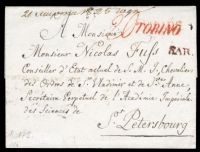 TORINO
A Monsieur
PAR.
Monsieur Nicolas Fuss
Conseiller d'Etat actuel de S. M. I, Chevalier
des Ordres de St. Vladimir et de Ste. Anne,
Secrétaire Perpétuel de l'Académie Impériale
des Sciences de
St. Petersbourg